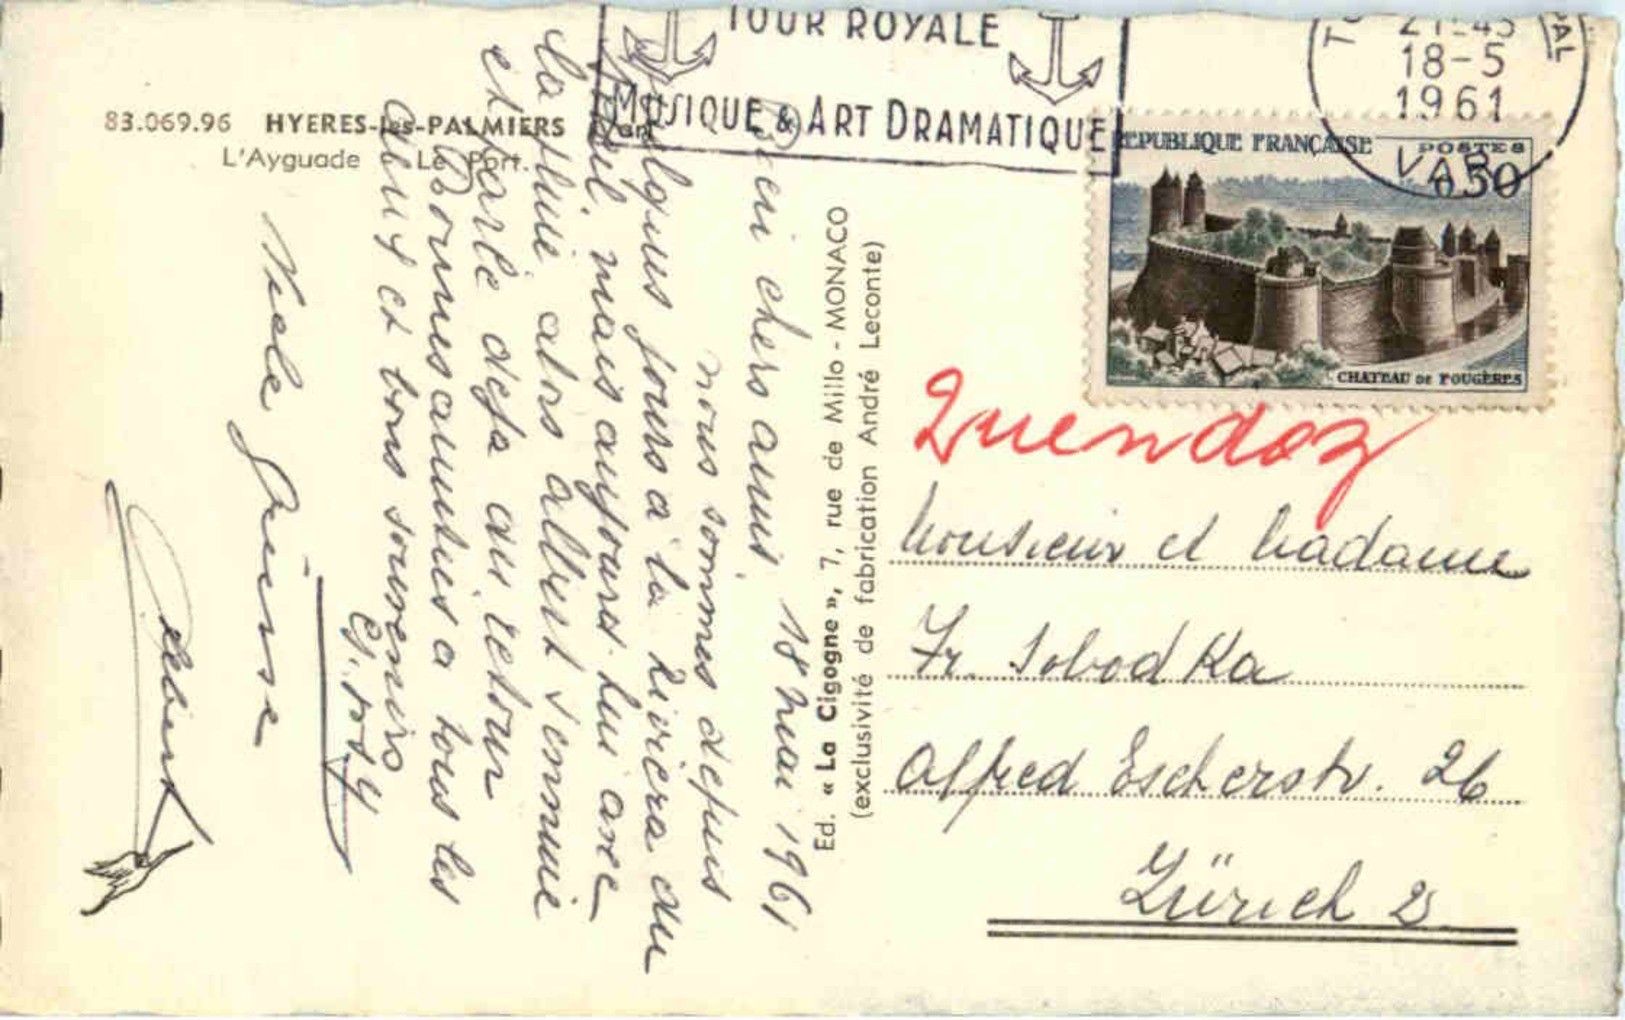 TOUR ROYALE
MUSIQUE & ART DRAMATIQUE
21-45
18-5
1961
VAR
83.069.96 HYERES-les-PALMIERS (Var)
L'Ayguade - Le Port.
REPUBLIQUE FRANÇAISE POSTES
0,50
CHATEAU DE FOUGÈRES
18 mai 1961
chers amis.
nous sommes depuis
quelques jours à la Riviera du
soleil, mais aujourd'hui avec
la pluie alors albert s'ennuie
et parle defa du retour
Bonnes amitiés a tous les
deux et bons souvenirs
Viele Grüsse
albert
Ed. « La Cigogne », 7, rue de Millo - MONACO
(exclusivité de fabrication André Leconte)
Quendoz
Monsieur et Madame
Fr. Sobodka
Alfred Escherstr. 26
Zürich 2